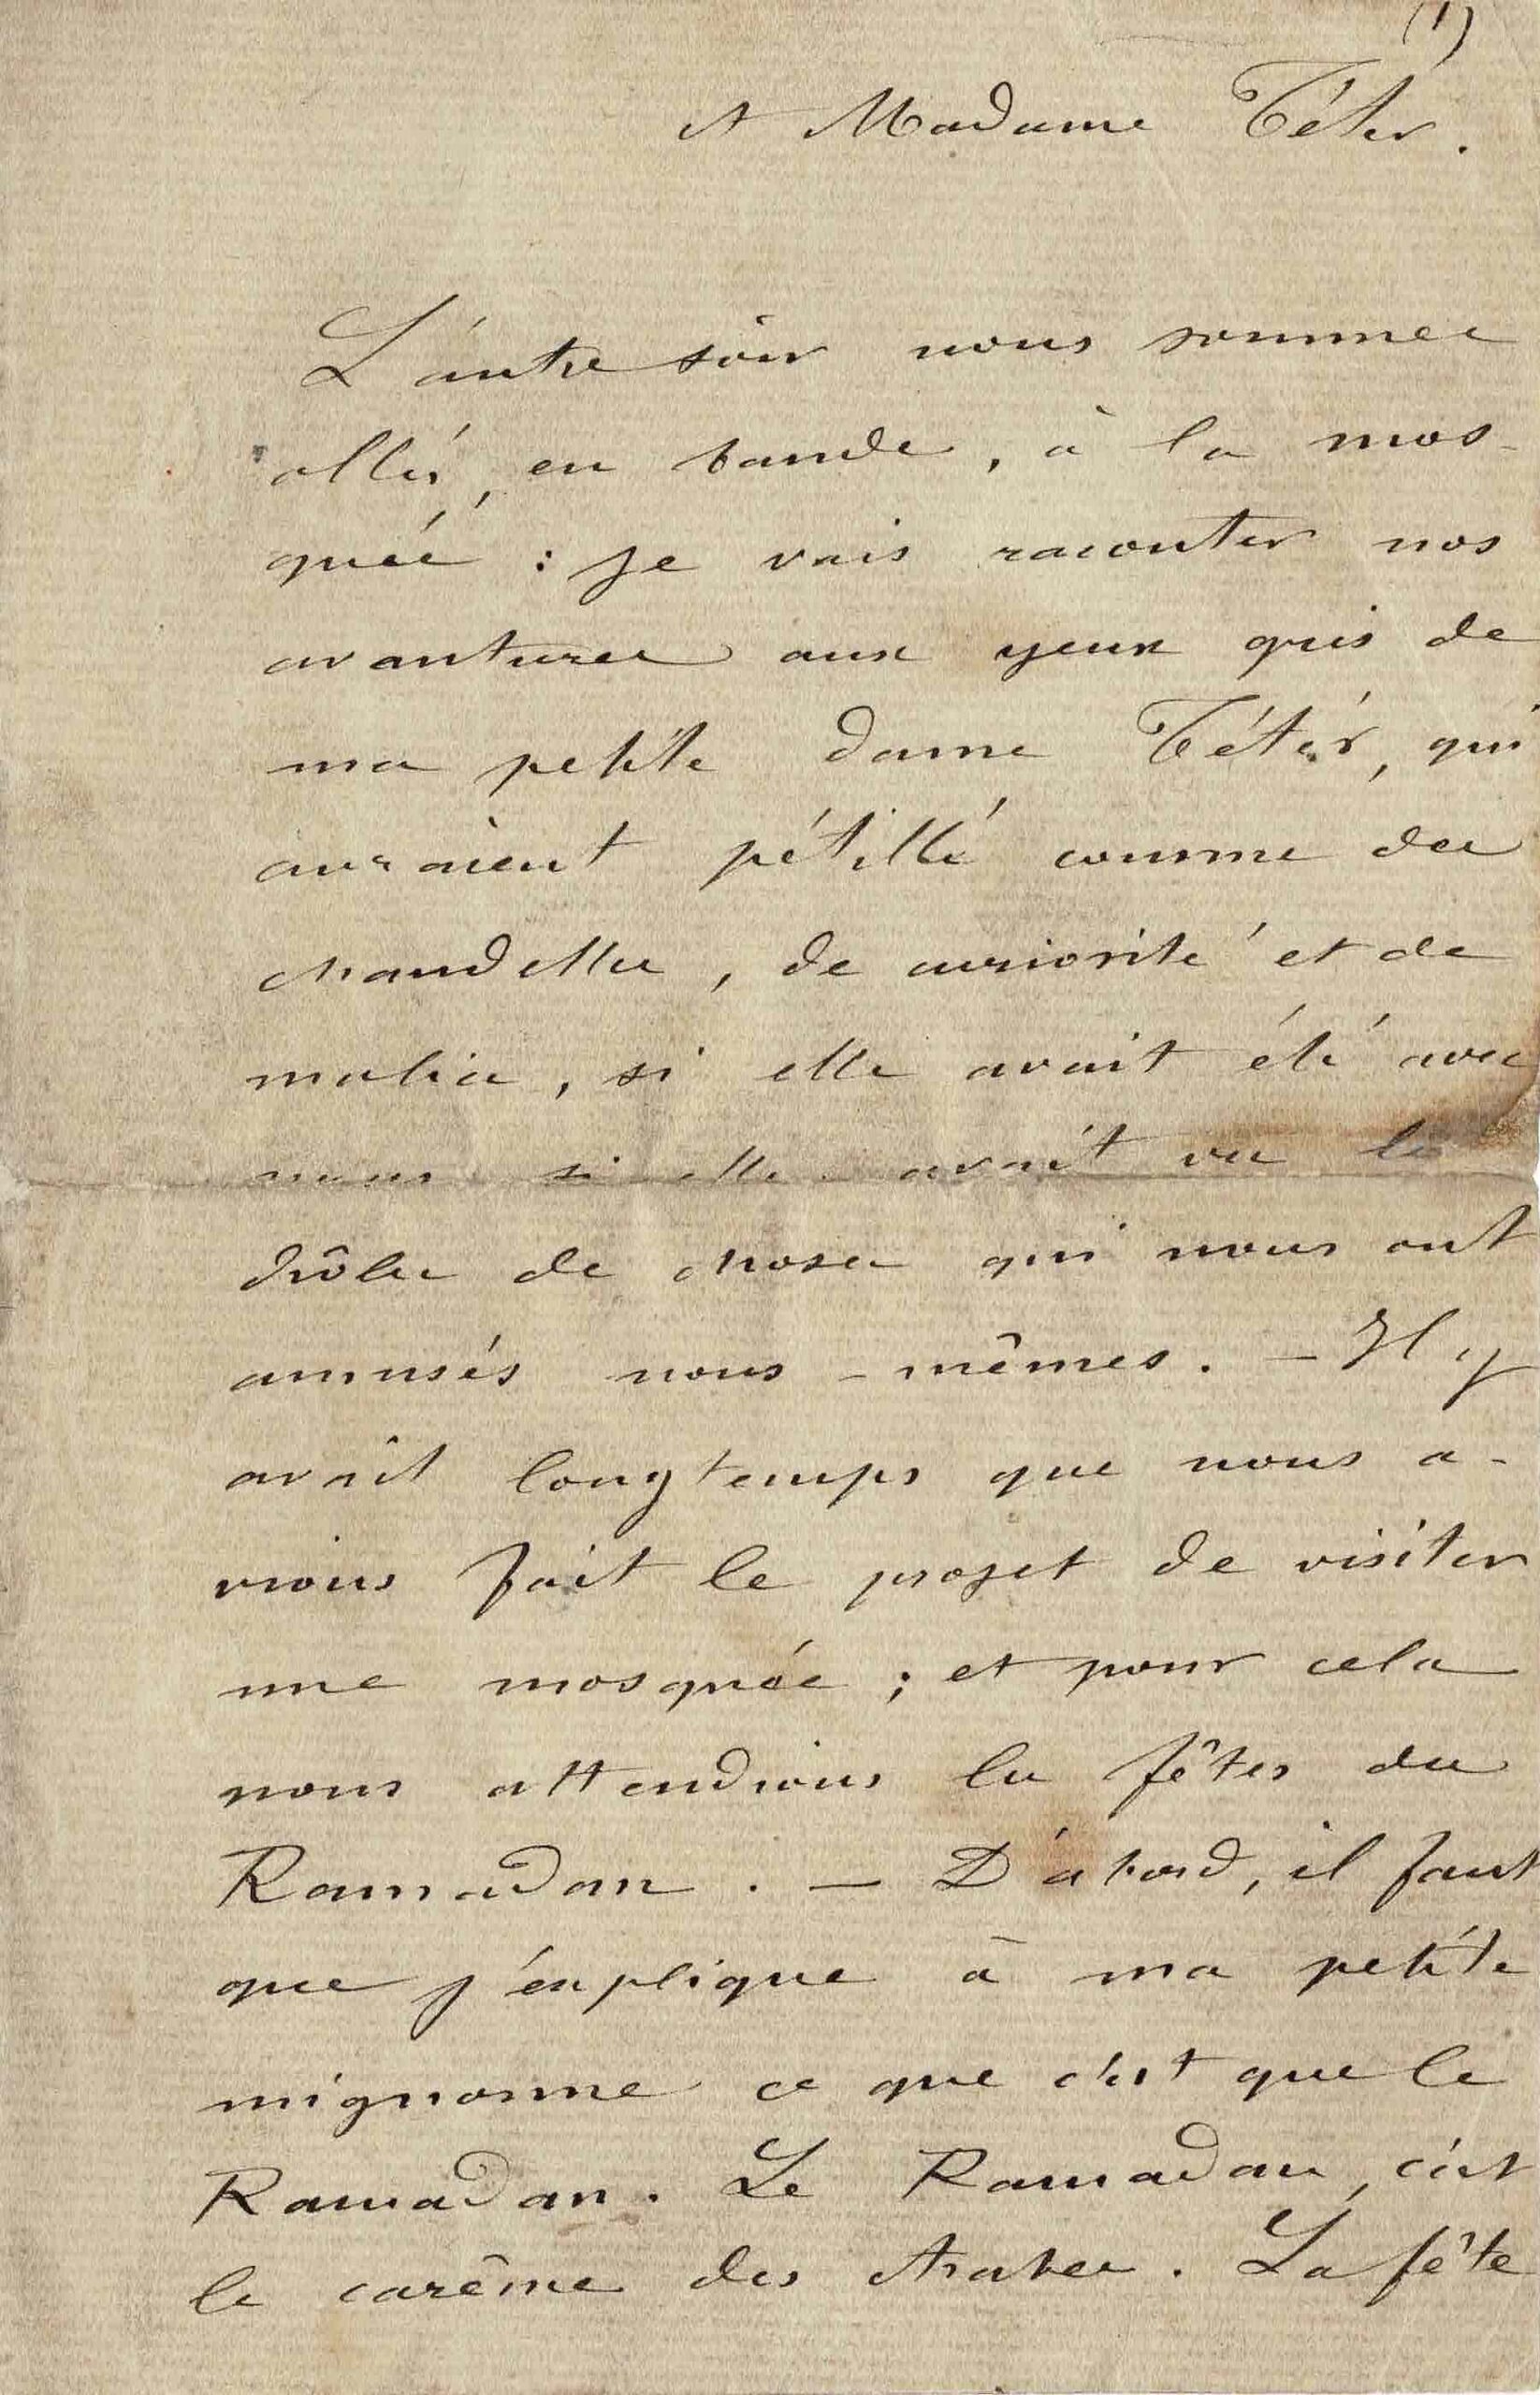 (1)
A Madame Tétér.
L'autre soir nous sommes
allés, en bande, à la mos-
quée : je vais raconter nos
avantures aux yeux gris de
ma petite dame Tétér, qui
auraient pétillé comme des
chandelles, de curiosité et de
malice, si elle avait été avec
nous si elle avait vu les
drôles de choses qui nous ont
amusés nous-mêmes. — Il y
avait longtemps que nous a-
vions fait le projet de visiter
une mosquée ; et pour cela
nous attendions les fêtes du
Ramadan. — D'abord, il faut
que j'explique à ma petite
mignonne ce que c'est que le
Ramadan. Le Ramadan, c'est
le carême des Arabes. La fête